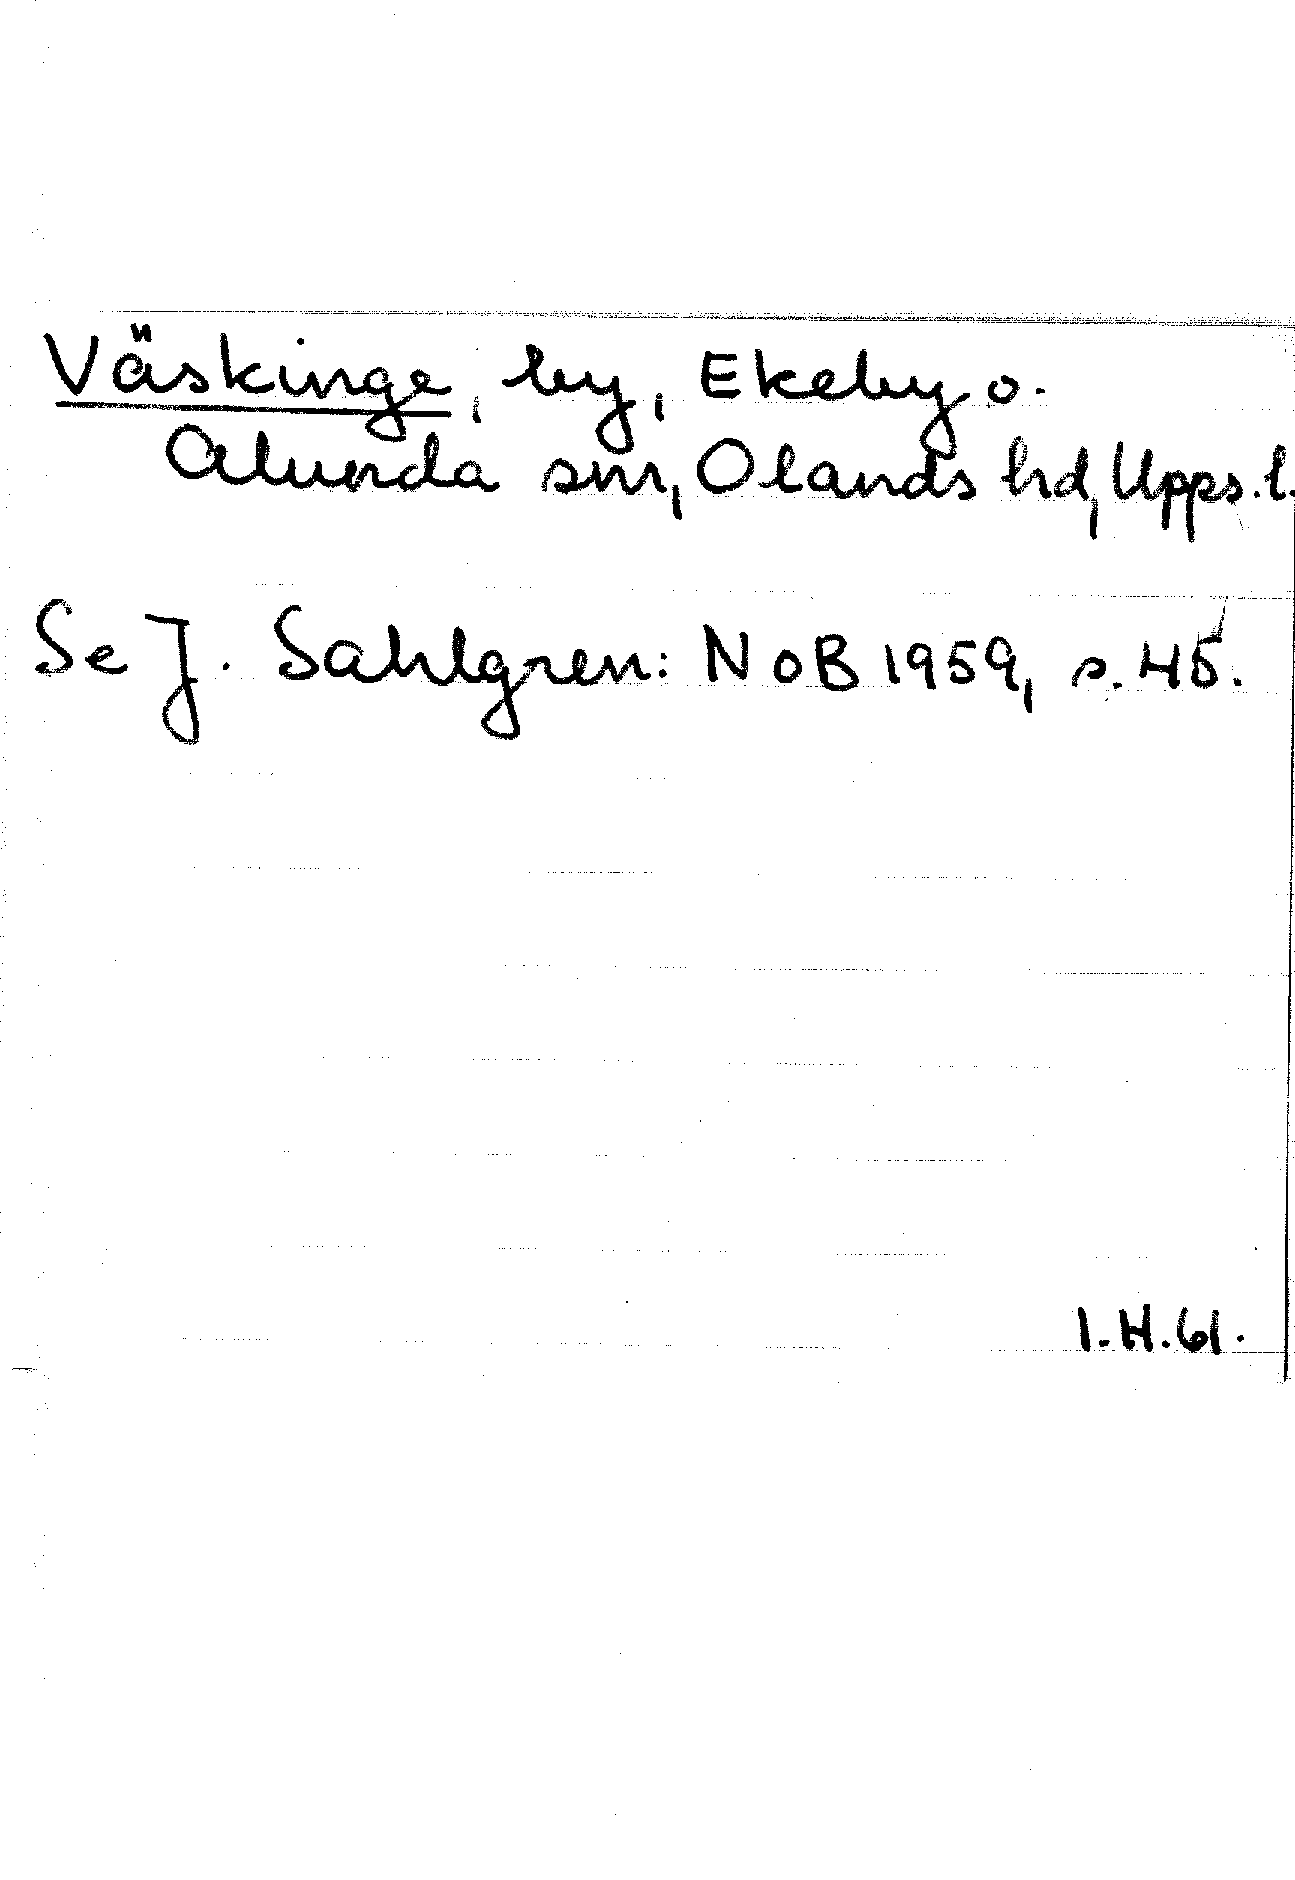 Väskinge, by, Ekeby o.
Alunda snr, Olands hd, Upps. l.
Se J. Sahlgren: NoB 1959, s. 45.
I.H.61.